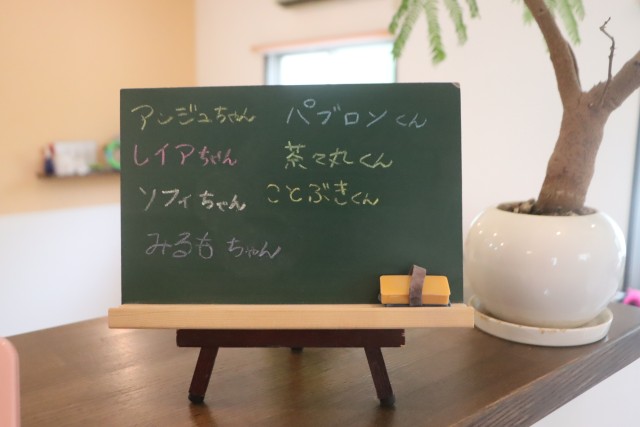 アンジュちゃん パブロンくん
レイアちゃん 茶々丸くん
ソフィちゃん ことぶきくん
みるもちゃん